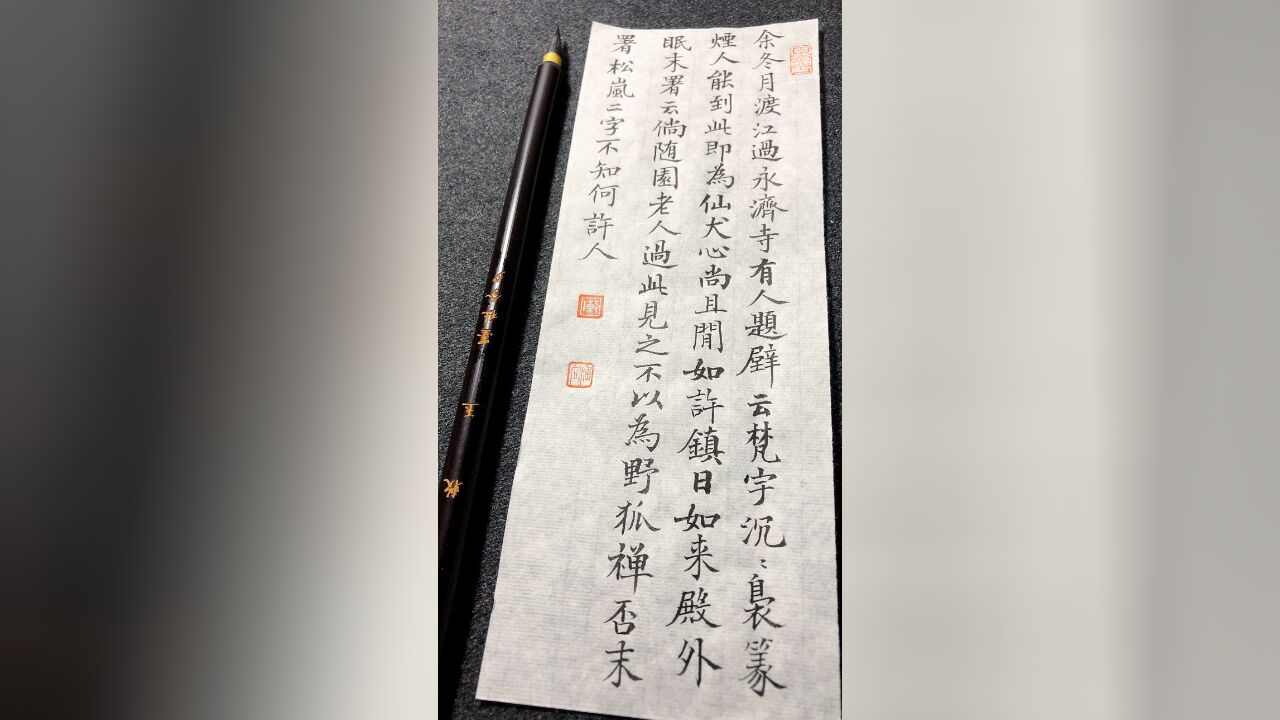 余冬月渡江過永濟寺有人題壁云梵宇沉〻裊篆
煙人能到此即為仙犬心尚且閒如許鎮日如来殿外
眠末署云倘随園老人過此見之不以為野狐禅否末
署松嵐二字不知何許人